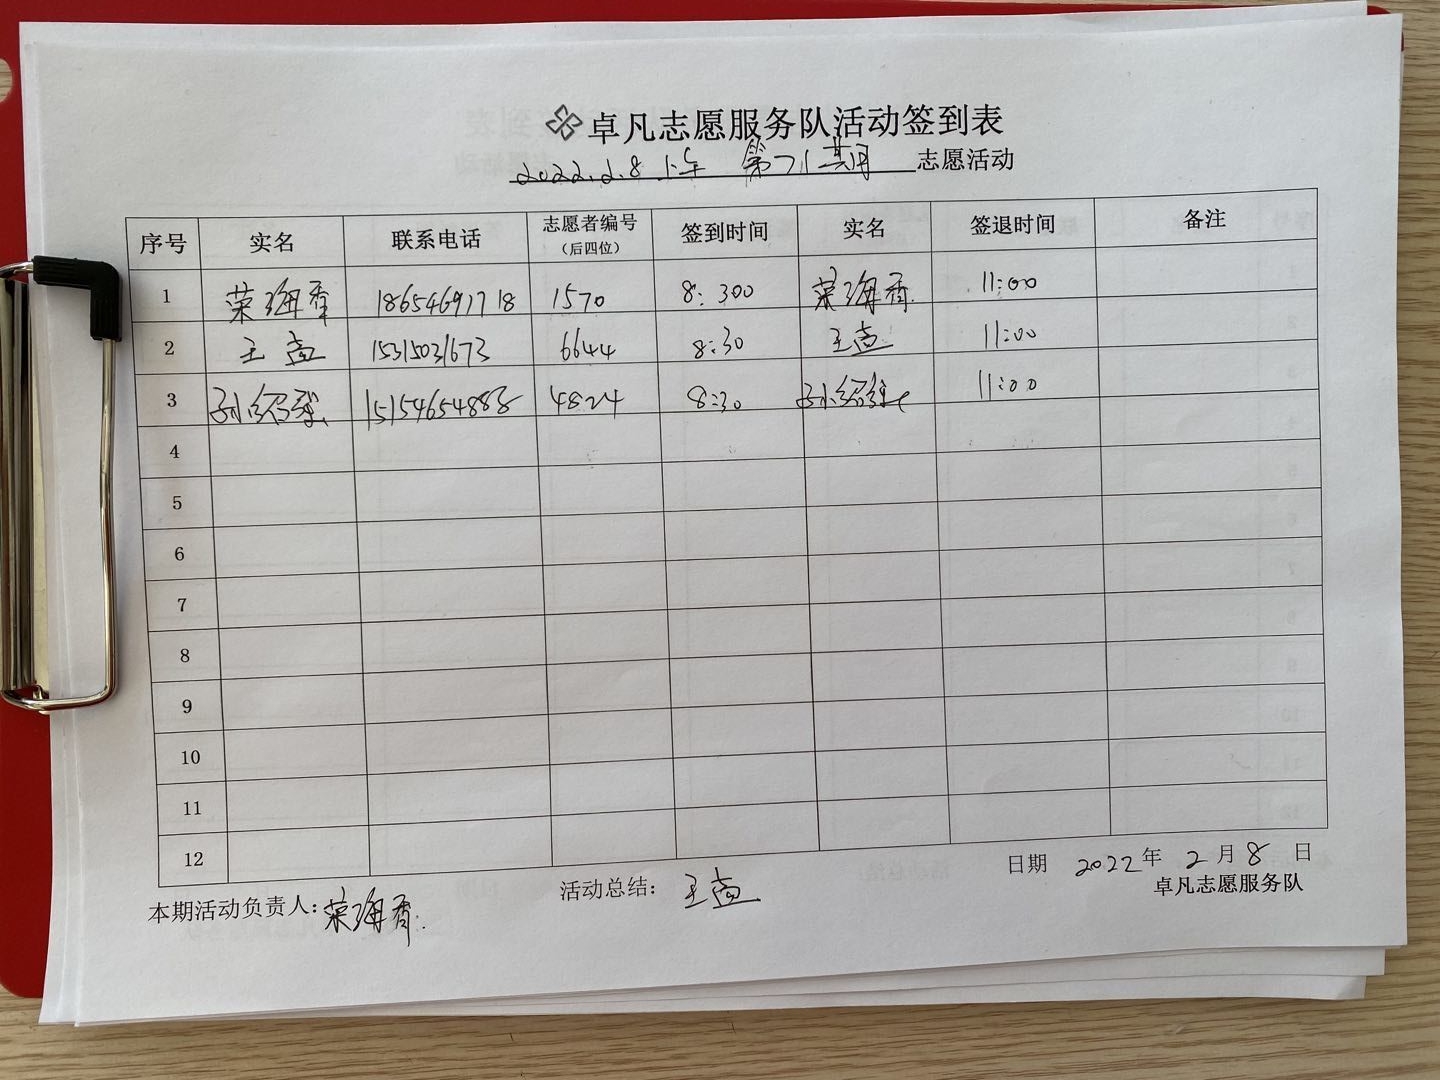 卓凡志愿服务队活动签到表
2022.2.8 上午 第71期 志愿活动
序号 实名 联系电话 志愿者编号（后四位） 签到时间 实名 签退时间 备注
1 荣海香 18654691718 1570 8:300 荣海香 11:00
2 王 15315031673 6644 8:30 王 11:00
3 孙绍 4824 8:30 孙绍 11:00
4
5
6
7
8
9
10
11
12
日期 2022年 2月 8 日
本期活动负责人：荣海香. 活动总结： 王
卓凡志愿服务队